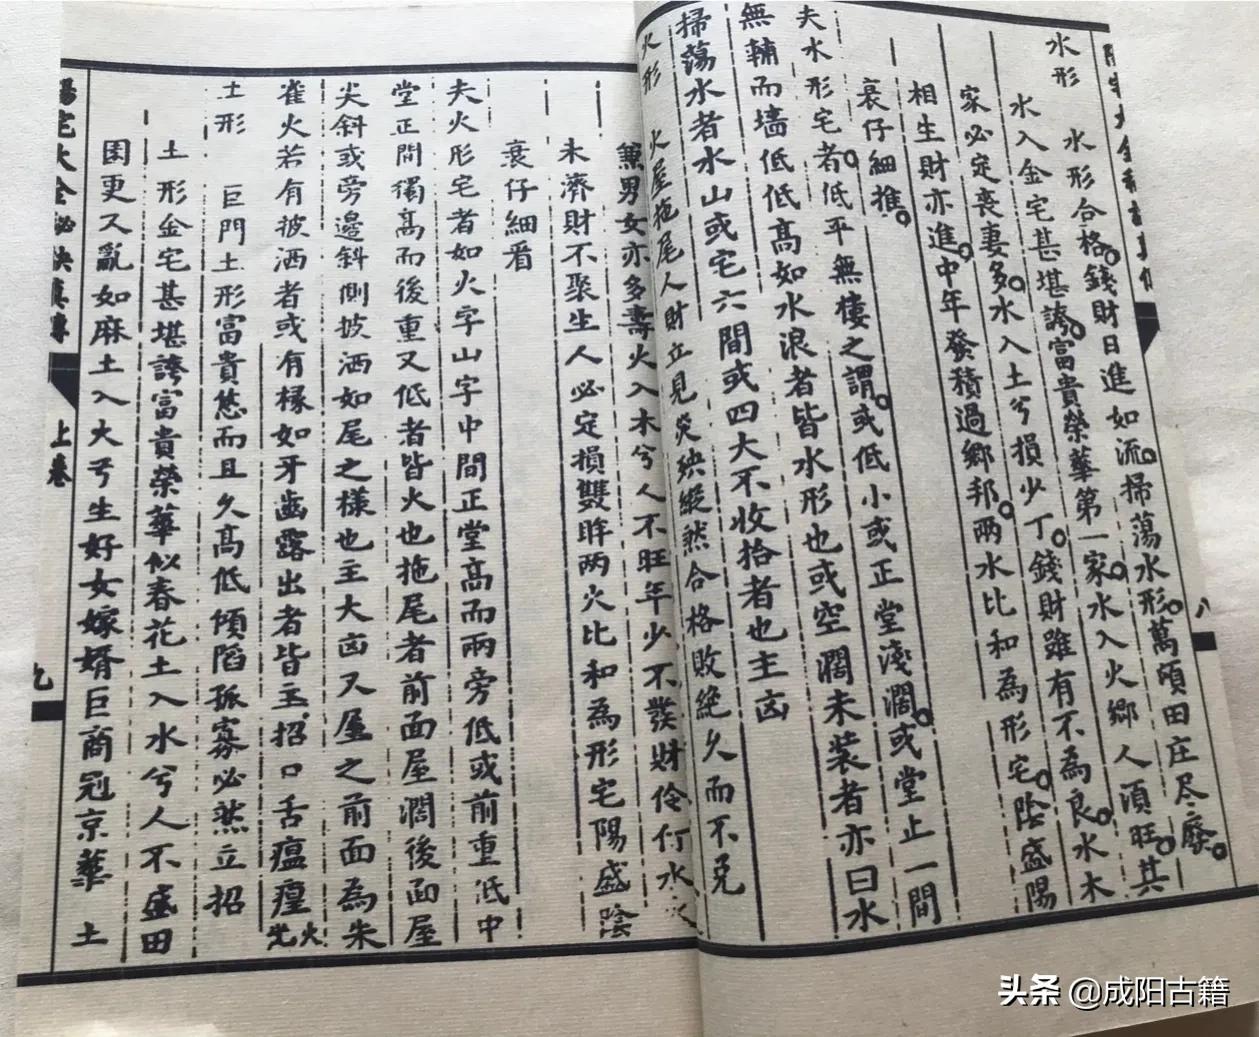 水形 水形合格錢財日進如流掃蕩水形萬頃田庄尽廢
水入金宅甚堪誇富貴榮華第一家水入火鄉人須旺其
家必定喪妻多水入土兮損少丁錢財雖有不為良水木
相生財亦進中年發積過鄉邦兩水比和為形宅陰盛陽
衰仔細推
夫水形宅者低平無棲之謂或低小或正堂淺濶或堂止一間
無輔而墻低低高如水浪者皆水形也或空濶未装者亦曰水
掃蕩水者水山或宅六間或四大不收拾者也主凶
火形 火屋拖尾人財立見災殃縱然合格敗絶久而不免
無男女亦多壽火入木兮人不旺年少不發財伶仃水火
未濟財不聚生人必定損雙眸两火比和為形宅陽盛陰
衰仔細看
夫火形宅者如火字山字中間正堂高而兩旁低或前重低中
堂正間獨高而後重又低者皆火也拖尾者前面屋濶後面屋
尖斜或旁邊斜側披洒如尾之様也主大凶又屋之前面為朱
雀火若有披洒者或有椽如牙齒露出者皆主招口舌瘟瘟火光
土形 巨門土形富貴悠而且久高低傾陷孤寡必然立招
土形金宅甚堪誇富貴榮華似春花土入水兮人不盛田
園更又亂如麻土入火兮生好女嫁婿巨商冠京華 土
陽宅大全秘訣真傳
上卷
九
八
头条 @成阳古籍